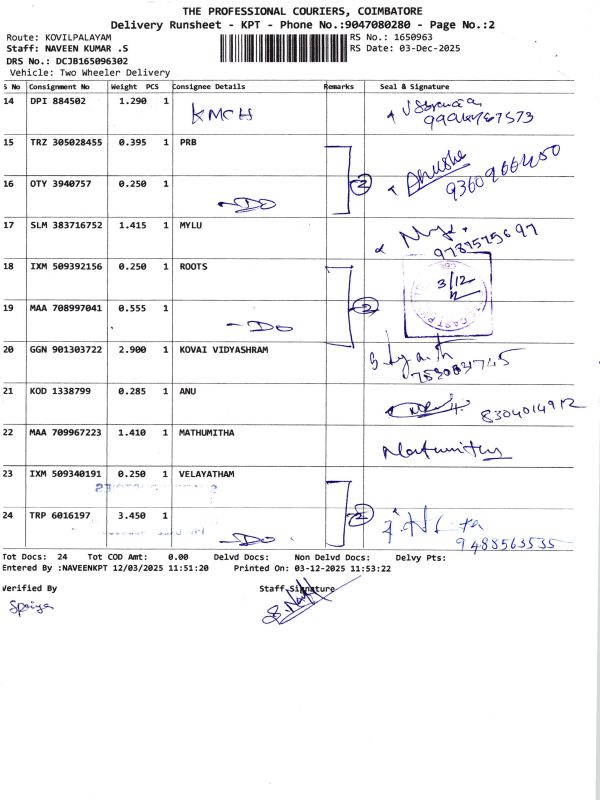 THE PROFESSIONAL COURIERS, COIMBATORE
Delivery Runsheet - KPT - Phone No.:9047080280 - Page No.:2
Route: KOVILPALAYAM RS No.: 1650963
Staff: NAVEEN KUMAR .S RS Date: 03-Dec-2025
DRS No.: DCJB165096302
Vehicle: Two Wheeler Delivery
S No Consignment No Weight PCS Consignee Details Remarks Seal & Signature
14 DPI 884502 1.290 1 KMCH
15 TRZ 305028455 0.395 1 PRB Anusha
16 OTY 3940757 0.250 1 -DO 2
17 SLM 383716752 1.415 1 MYLU
18 IXM 509392156 0.250 1 ROOTS 3/12
19 MAA 708997041 0.555 1 -DO 2
20 GGN 901303722 2.900 1 KOVAI VIDYASHRAM
21 KOD 1338799 0.285 1 ANU 8304014912
22 MAA 709967223 1.410 1 MATHUMITHA
23 IXM 509340191 0.250 1 VELAYATHAM
24 TRP 6016197 3.450 1 -DO 2 9488563535
Tot Docs: 24 Tot COD Amt: 0.00 Delvd Docs: Non Delvd Docs: Delvy Pts:
Entered By :NAVEENKPT 12/03/2025 11:51:20 Printed On: 03-12-2025 11:53:22
Verified By Staff Signature